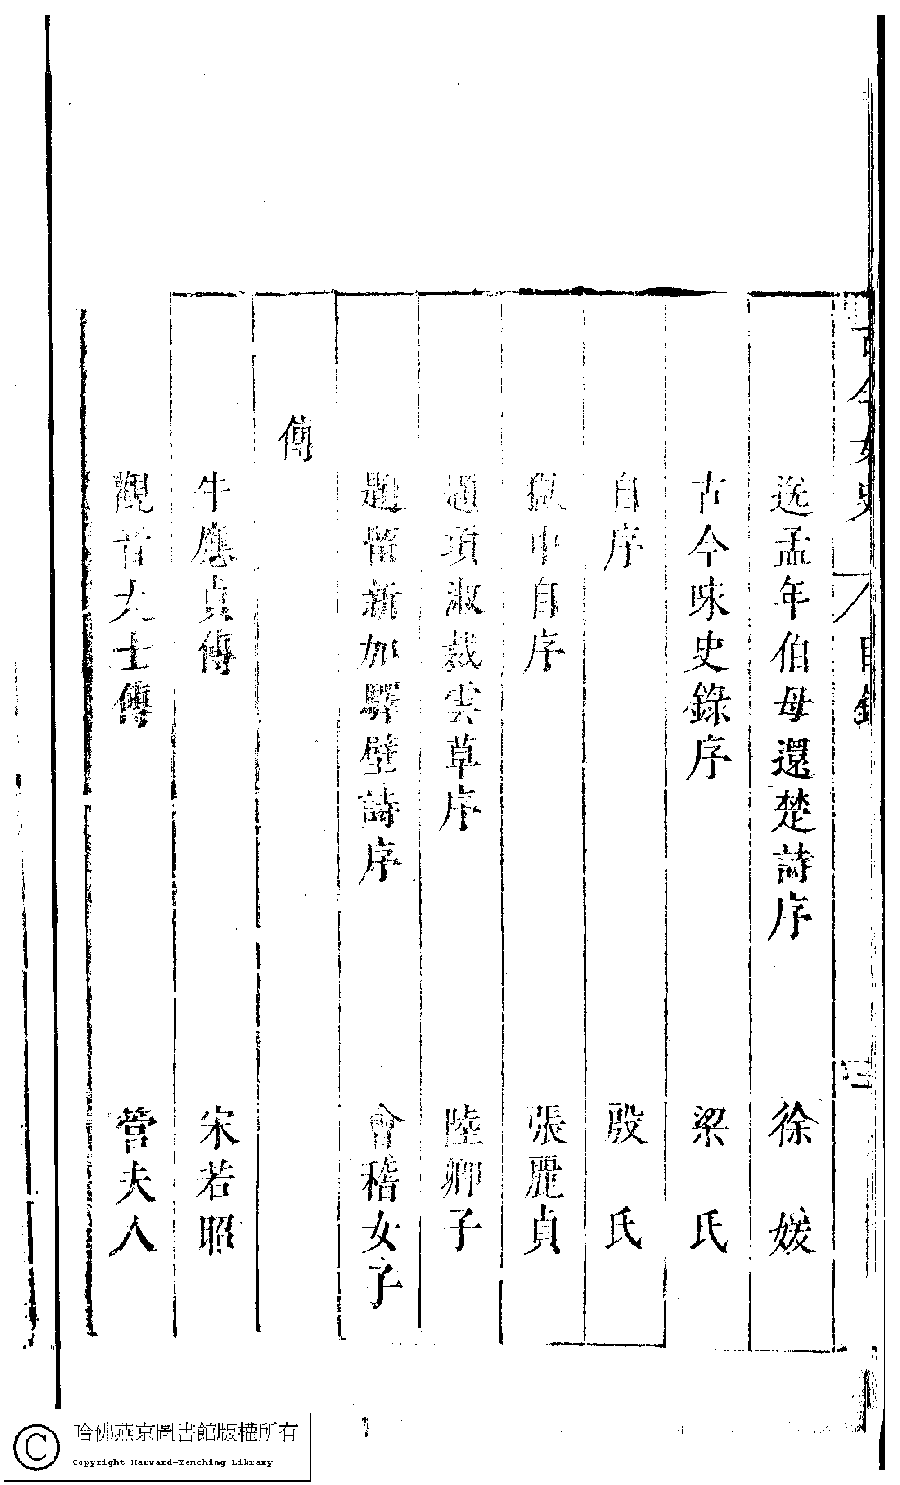 古今女史 目錄
送孟年伯母還楚詩序 徐媛
古今味史錄序 梁氏
自序 殷氏
獄中自序 張麗貞
題項淑裁雲草序 陸卿子
題留新加驛壁詩序 會稽女子
傳
牛應貞傳 宋若昭
觀音大士傳 管夫人
哈佛燕京圖書館版權所有
Copyright Harvard-Yenching Library